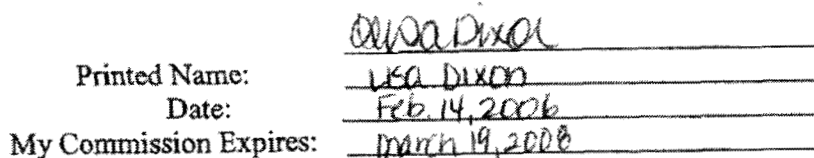 Printed Name: Lisa Dixon
Date: Feb. 14, 2006
My Commission Expires: March 19, 2008